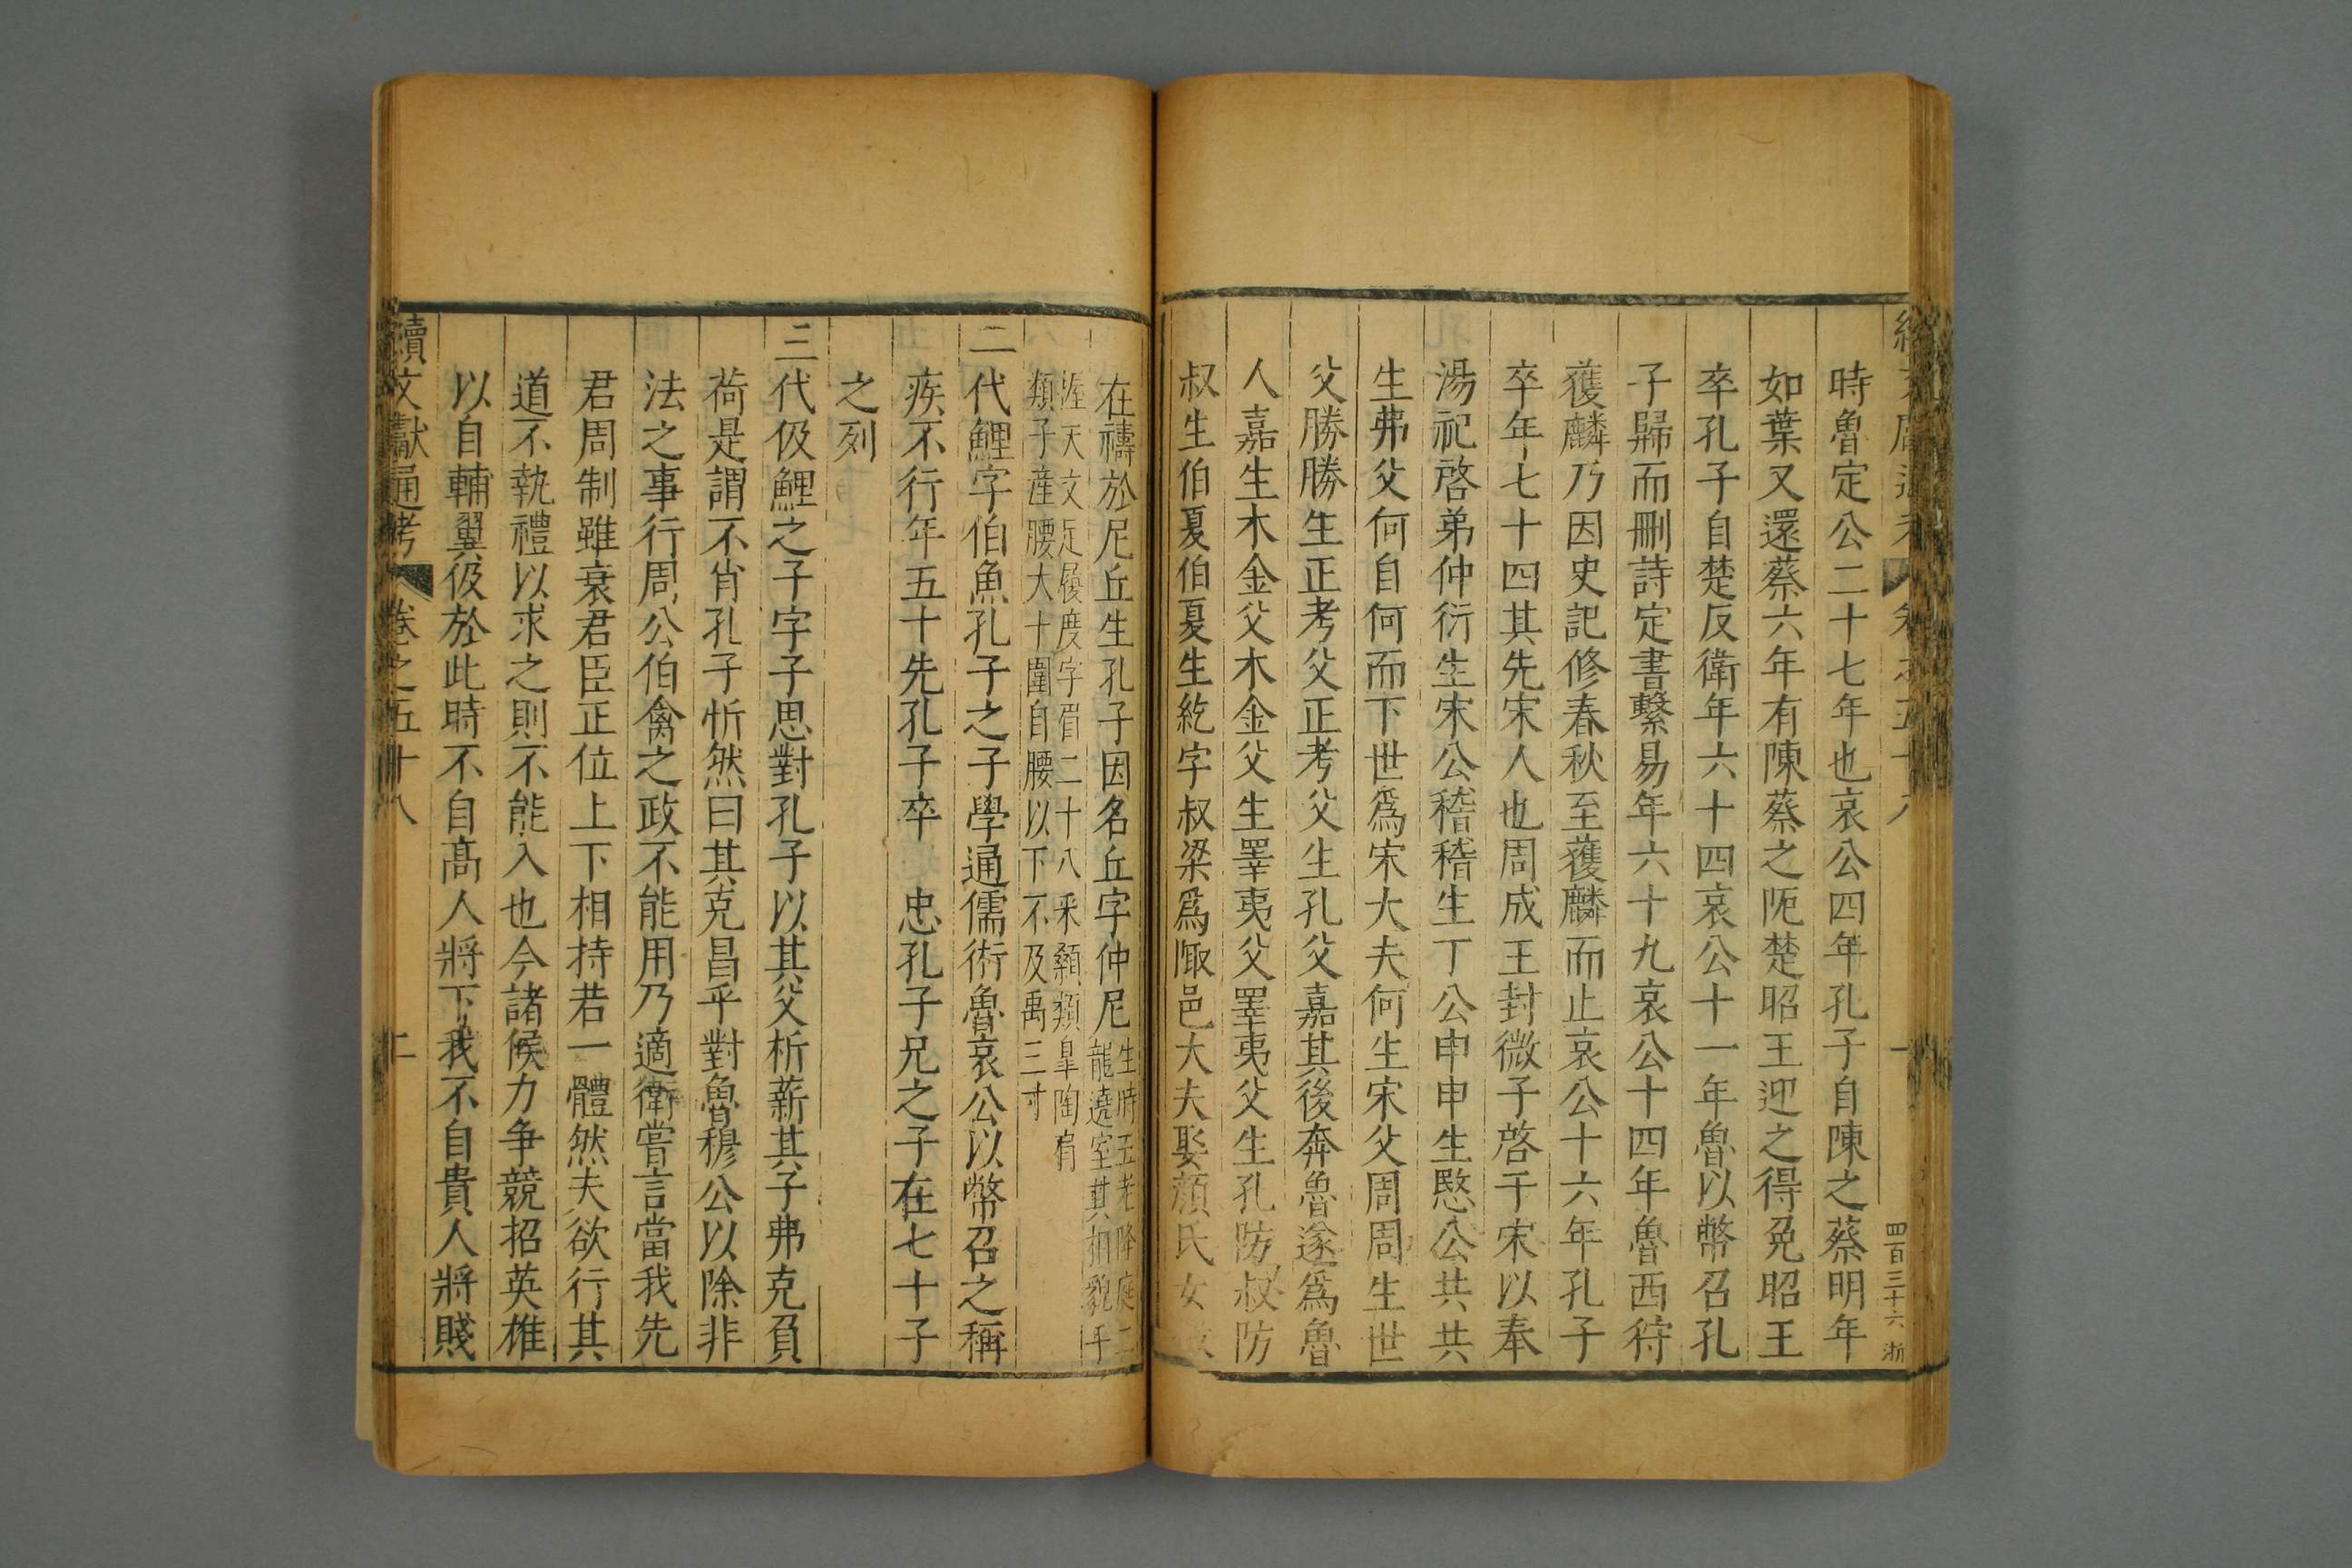 時魯定公二十七年也哀公四年孔子自陳之蔡明年
如葉又還蔡六年有陳蔡之阨楚昭王迎之得免昭王
卒孔子自楚反衛年六十四哀公十一年魯以幣召孔
子歸而刪詩定書繫易年六十九哀公十四年魯西狩
獲麟乃因史記修春秋至獲麟而止哀公十六年孔子
卒年七十四其先宋人也周成王封微子啓于宋以奉
湯祀啓弟仲衍生宋公稽稽生丁公申申生愍公共共
生弗父何自何而下世爲宋大夫何生宋父周周生世
父勝勝生正考父正考父生孔父嘉其後奔魯遂爲魯
人嘉生木金父木金父生睪夷父睪夷父生孔防叔防
叔生伯夏伯夏生紇字叔梁爲陬邑大夫娶顔氏女
四百三十六 浙
在禱於尼丘生孔子因名丘字仲尼生時五老降庭二
龍遶室其相貌
文足履度字眉二十八采顙類皐陶肩
類子産腰大十圍自腰以下不及禹三寸
二代鯉字伯魚孔子之子學通儒術魯哀公以幣召之稱
疾不行年五十先孔子卒 忠孔子兄之子在七十子
之列
三代伋鯉之子字子思對孔子以其父析薪其子弗克負
荷是謂不肖孔子忻然曰其克昌乎對魯穆公以除非
法之事行周公伯禽之政不能用乃適衛嘗言當我先
君周制雖衰君臣正位上下相持若一體然夫欲行其
道不執禮以求之則不能入也今諸侯力争競招英雄
以自輔翼伋於此時不自髙人將下我不自貴人將賤
續文獻通考 卷之五十八